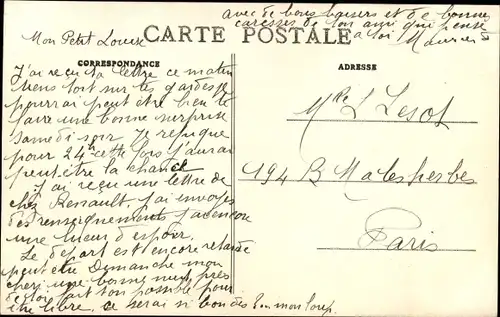 avec de bons baisers et de bonnes
caresses de ton ami qui pense
à toi Maurice
Mon Petit Louise
CARTE POSTALE
CORRESPONDANCE
ADRESSE
J'ai reçu ta lettre ce matin
tiens toit sur tes gardes je
pourrai peut être bien te
faire une bonne surprise
samedi soir Je repique
pour 24h cette fois j'aurai
peut être la chance
J'ai reçu une lettre de
chez Renault j'ai envoyé
des renseignements j'ai encore
une lueur d'espoir.
Le départ est encore retardé
peut être Dimanche mon
chéri une bonne nuit près
de toi fait ton possible pour
être libre. ce serai si bon dis mon loup.
L Lesot
194 B Malesherbes
Paris